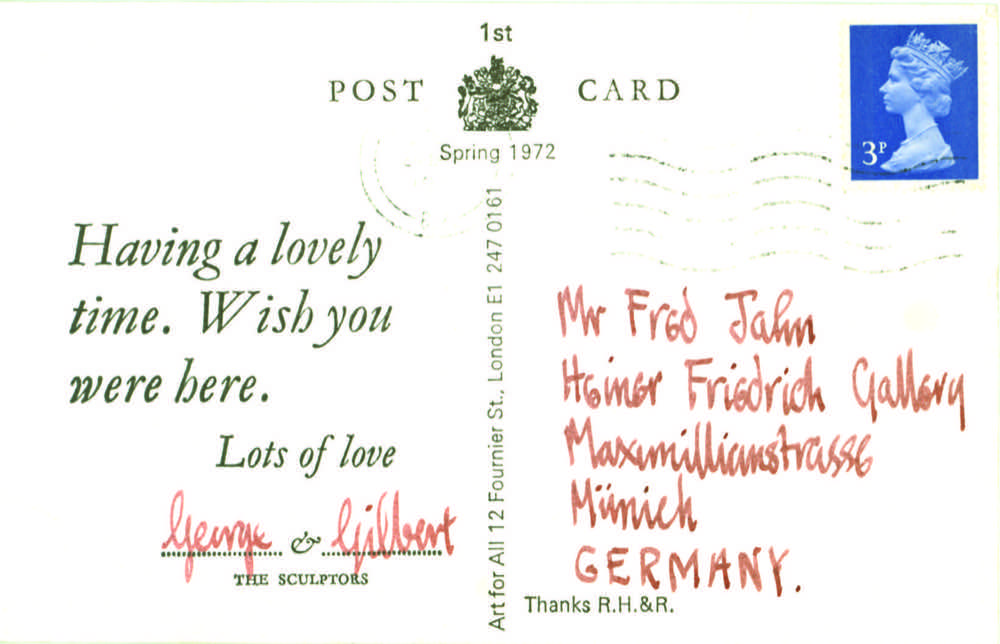 1st
POST CARD
Spring 1972
3P
Having a lovely
time. Wish you
were here.
Lots of love
George & Gilbert
THE SCULPTORS
Art for All 12 Fournier St., London E1 247 0161
Mr Fred Jahn
Heiner Friedrich Gallery
Maximillianstrasse
Münich
GERMANY.
Thanks R.H.&R.